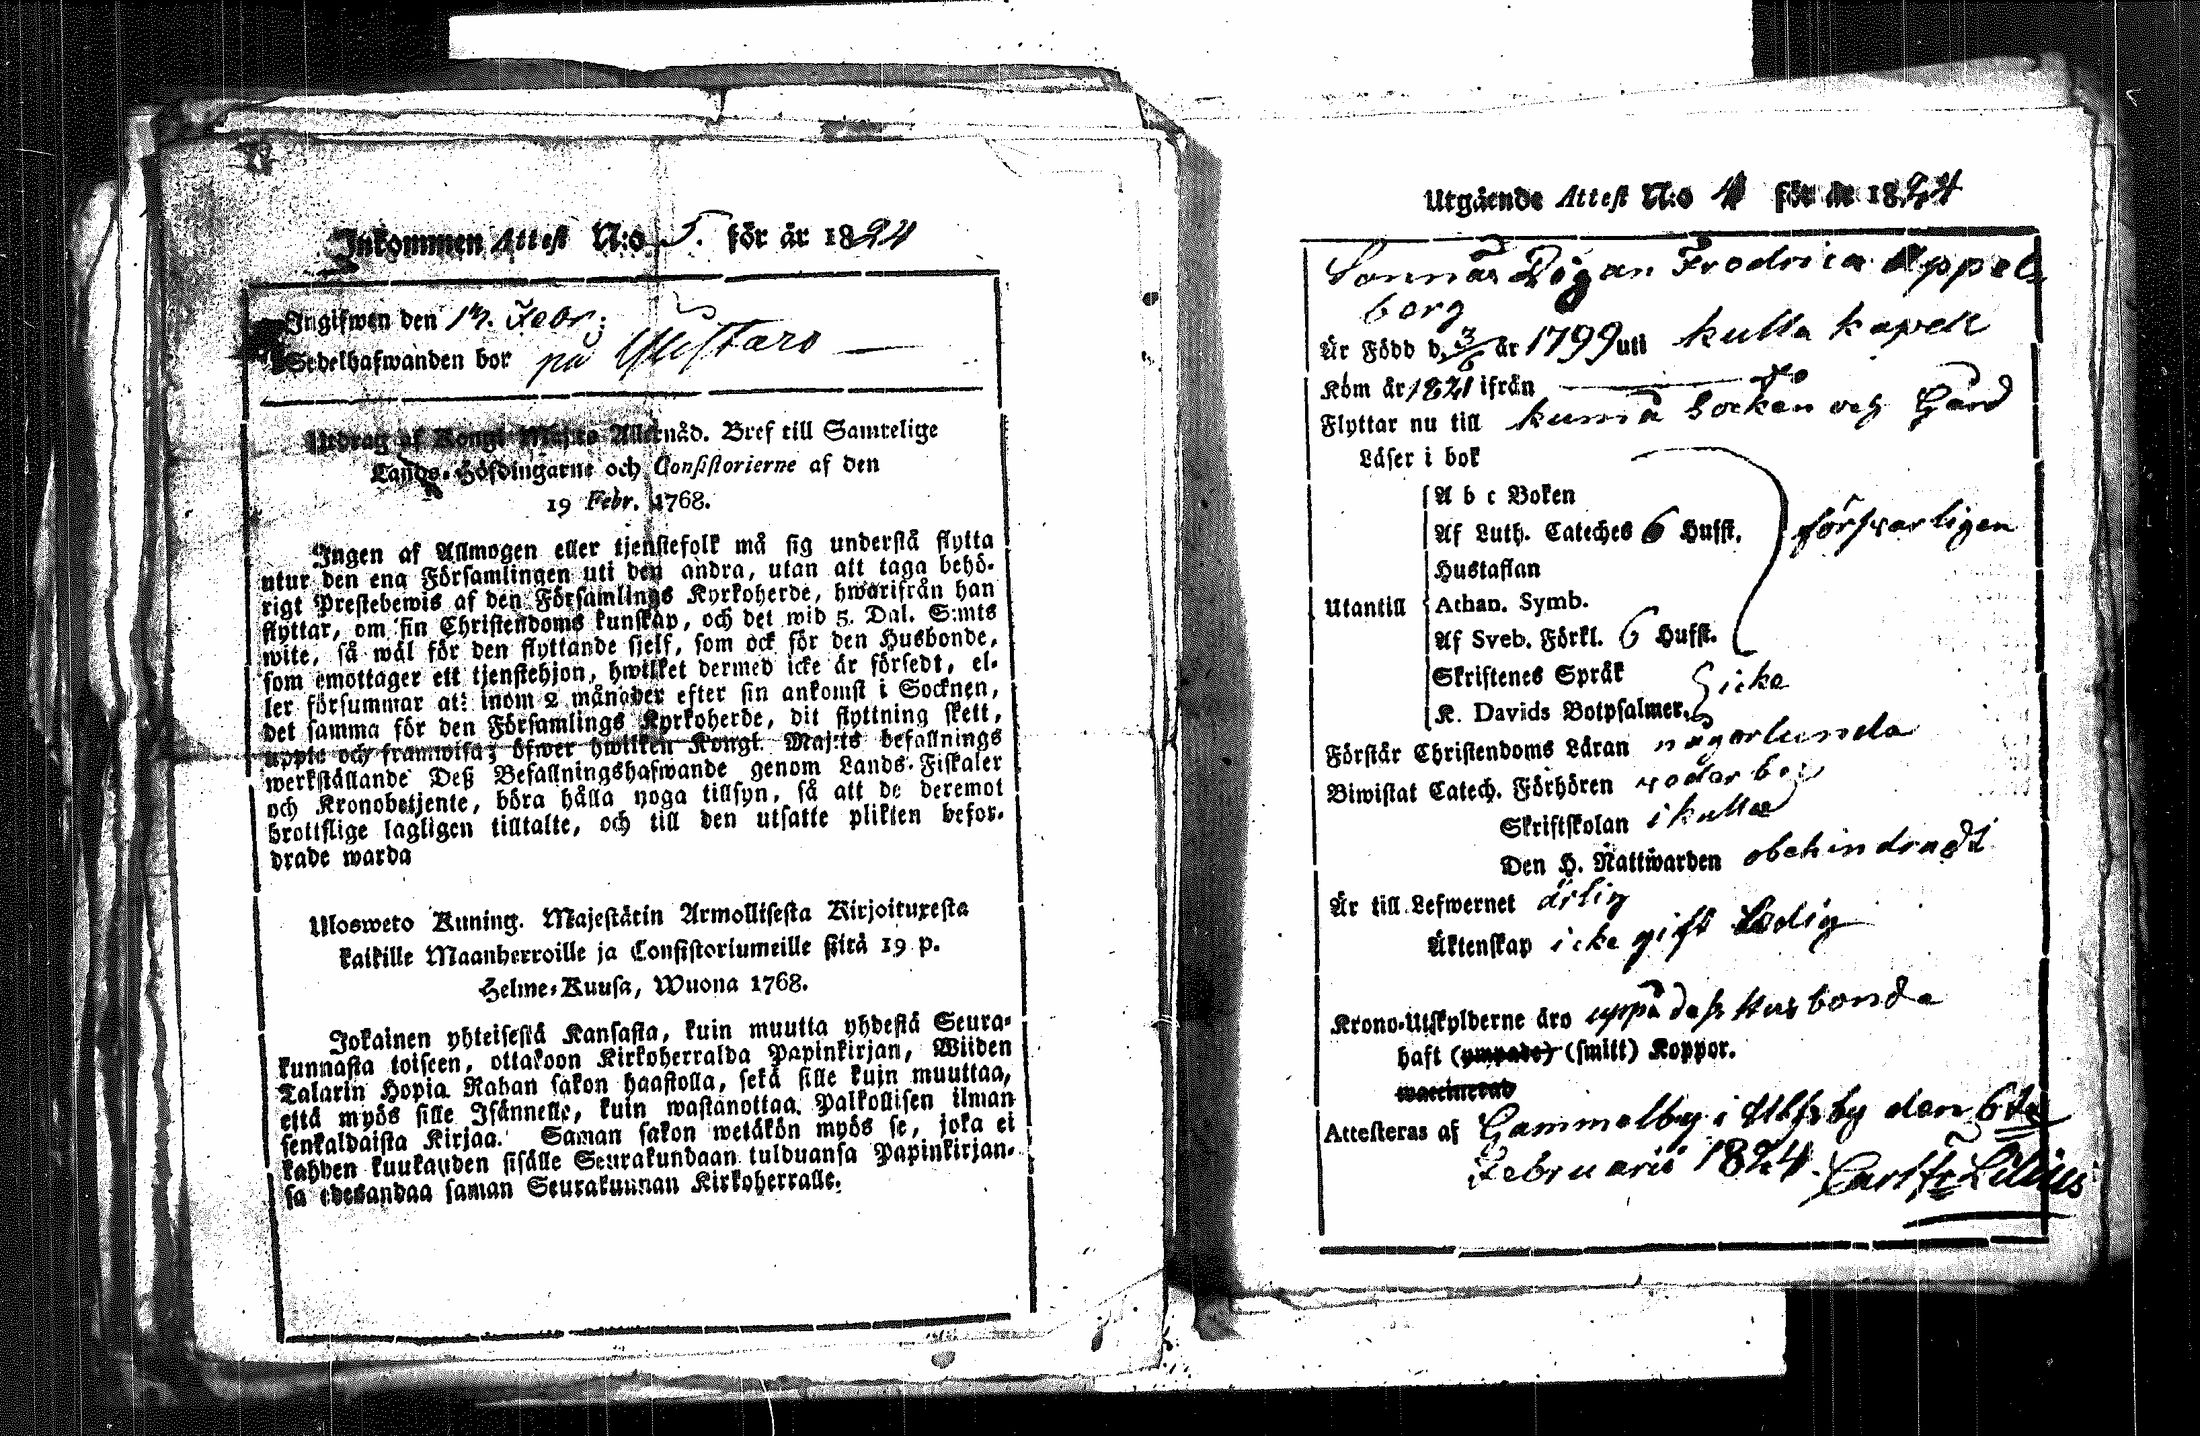 Inkommen Attest N:o 5. för år 1824
Ingifwen den 17. Febr:
Sedelhafwanden bor på
Utdrag af Kongl Maj:ts Allernåd. Bref till Samtelige
Lands-Höfdingarne och Consistorierne af den
19 Febr. 1768.
Ingen af Allmogen eller tjenstefolk må sig understå flytta
utur den ena Församlingen uti den andra, utan att taga behö-
rigt Prestebewis af den Församlings Kyrkoherde, hwarifrån han
flyttar, om sin Christendoms kunskap, och det wid 5. Dal. S:mts
wite, så wäl för den flyttande sjelf, som ock för den Husbonde,
som emottager ett tjenstehjon, hwilket dermed icke är försedt, el-
ler försummar att inom 2 månader efter sin ankomst i Socknen,
det samma för den Församlings Kyrkoherde, dit flyttning skett,
uppte och framwisa; öfwer hwilken Kongl. Maj:ts befallnings
werkställande Deß Befallningshafwande genom Lands-Fiskaler
och Kronobetjente, böra hålla noga tillsyn, så att de deremot
brottslige lagligen tilltalte, och till den utsatte plikten befor-
drade warda
Ulosweto Kuning. Majestätin Armollisesta Kirjoituxesta
kaikille Maanherroille ja Consistoriumeille siitä 19 p.
Helme-Kuusa, Wuona 1768.
Jokainen yhteisestä Kansasta, kuin muutta yhdestä Seura-
kunnasta toiseen, ottakoon Kirkoherralda Papinkirjan, Wiiden
Talarin Hopia Rahan sakon haastolla, sekä sille kuin muuttaa,
että myös sille Isännelle, kuin wastanottaa Palkollisen ilman
senkaldaista Kirjaa. Saman sakon wetäkön myös se, joka ei
kahden kuukauden sisälle Seurakundaan tulduansa Papinkirjan-
sa edesandaa saman Seurakunnan Kirkoherralle.
Utgående Attest N:o 4 för år 1824
Sonnäs Pigan Fredrica Appel-
berg
Är Född d. 3/6 år 1799 uti kulla kapell
Kom år 1821 ifrån
Flyttar nu till kumå Socken och Gård
Läser i bok
A b c Boken
Af Luth. Cateches 6 Hufst. försvarligen
Hustaflan
Utantill Athan. Symb.
Af Sveb. Förkl. 6 Hufst.
Skriftenes Språk
K. Davids Botpsalmer. icke
Förstår Christendoms Läran någorlunda
Biwistat Catech. Förhören
Skriftskolan i kulla
Den H. Nattwarden obehindradt
Är till Lefwernet ärlig
Äktenskap icke gift Ledig
Krono-Utskylderne äro uppå dess Husbonde
haft (ympade) (smitt) Koppor.
waccinerad
Attesteras af Gammelby i Ulfsby den 6te
Februarii 1824. Carl Fr Lilius